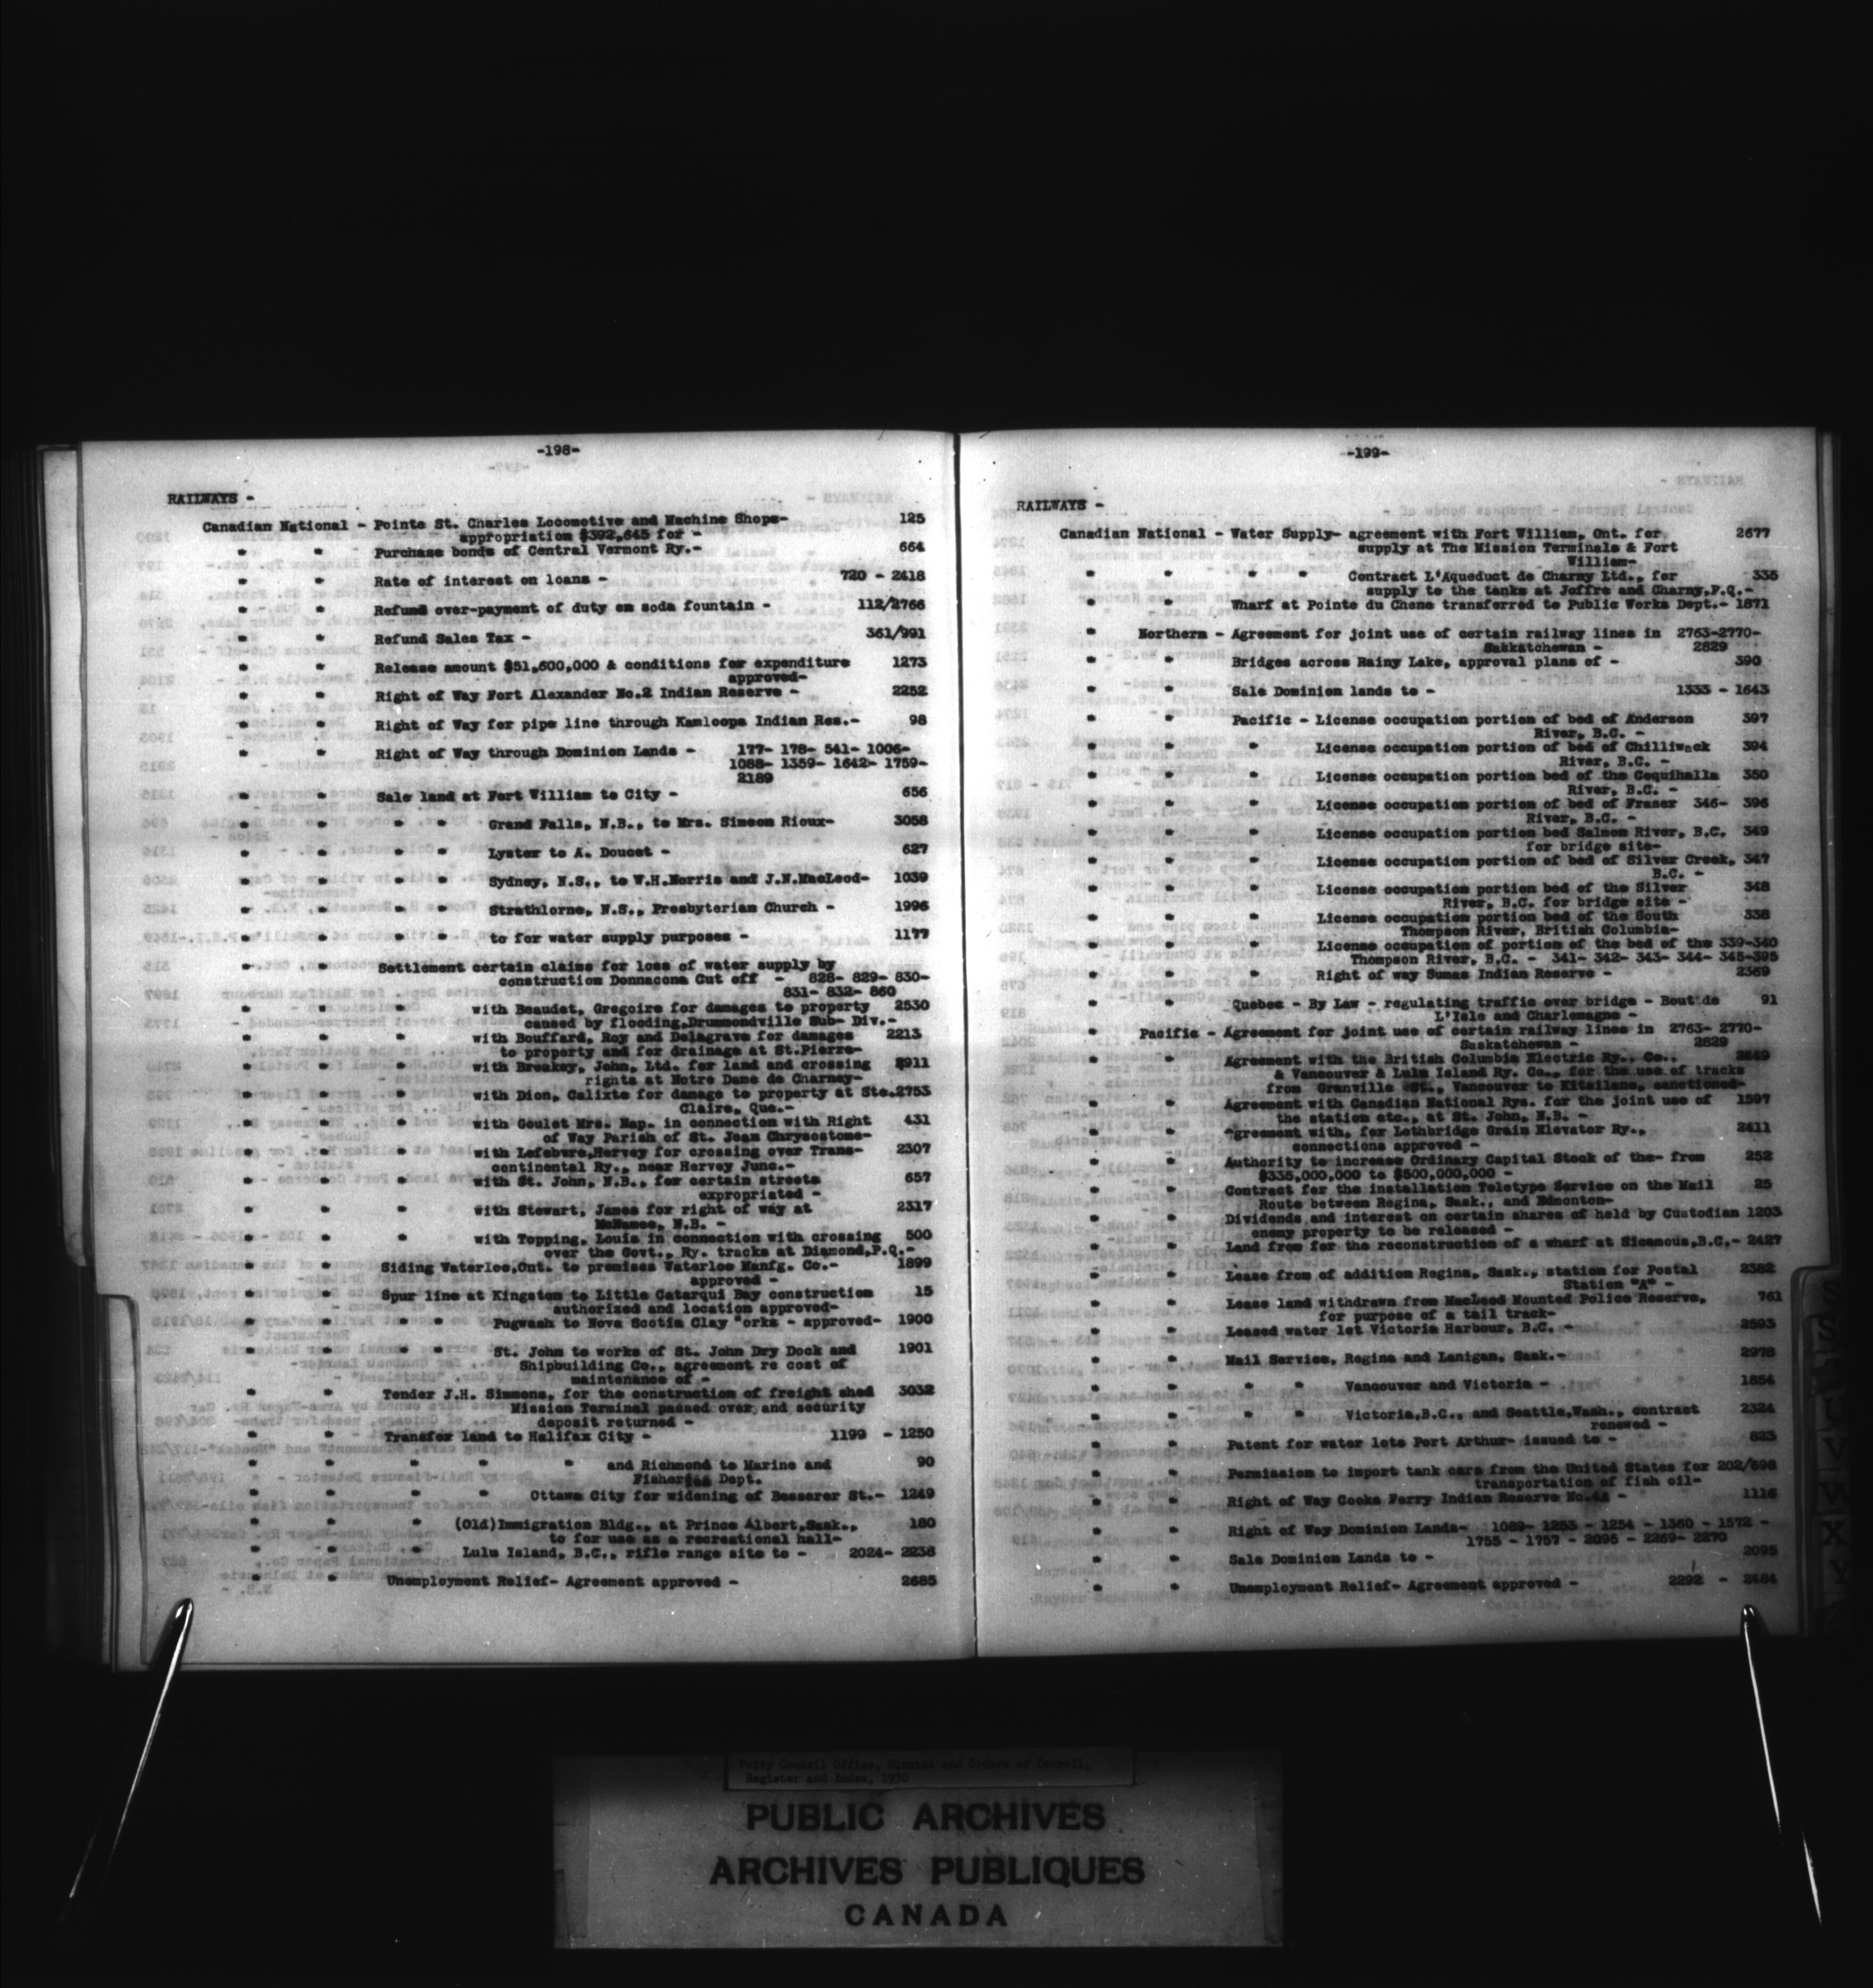 -198-
RAILWAYS -
Canadian National - Pointe St. Charles Locomotive and Machine Shops- 125
appropriation $392,645 for -
" " Purchase bonds of Central Vermont Ry.- 664
" " Rate of interest on loans - 720 - 2418
" " Refund over-payment of duty on soda fountain - 112/2766
" " Refund Sales Tax - 361/991
" " Release amount $51,600,000 & conditions for expenditure 1273
approved-
" " Right of Way Fort Alexander No.2 Indian Reserve - 2252
" " Right of Way for pipe line through Kamloops Indian Res.- 98
" " Right of Way through Dominion Lands - 177- 178- 541- 1006-
1088- 1359- 1642- 1759-
2189
" " Sale land at Fort William to City - 656
" " " " Grand Falls, N.B., to Mrs. Simeon Rioux- 3058
" " " " Lyster to A. Doucet - 627
" " " " Sydney, N.S., to W.H.Morris and J.N.MacLeod- 1039
" " " " Strathlorne, N.S., Presbyterian Church - 1996
" " " " to for water supply purposes - 1177
" " Settlement certain claims for loss of water supply by
construction Donnacona Cut off - 828- 829- 830-
831- 832- 860
" " " with Beaudet, Gregoire for damages to property 2530
caused by flooding,Drummondville Sub- Div.-
" " " with Bouffard, Roy and Delagrave for damages 2213
to property and for drainage at St.Pierre-
" " " with Breakey, John, Ltd. for land and crossing 2911
rights at Notre Dame de Charney-
" " " with Dion, Calixte for damage to property at Ste.2753
Claire, Que.-
" " " with Goulet Mrs. Nap. in connection with Right 431
of Way Parish of St. Jean Chrysostome-
" " " with Lefebvre,Hervey for crossing over Trans- 2307
continental Ry., near Hervey Junc.-
" " " with St. John, N.B., for certain streets 657
expropriated -
" " " with Stewart, James for right of way at 2317
McNamee, N.B. -
" " " with Topping, Louis in connection with crossing 500
over the Govt., Ry. tracks at Diamond,P.Q.-
" " Siding Waterloo,Ont. to premises Waterloo Manfg. Co.- 1899
approved -
" " Spur line at Kingston to Little Catarqui Bay construction 15
authorized and location approved-
" " " " Pugwash to Nova Scotia Clay "orks - approved- 1900
" " " " St. John to works of St. John Dry Dock and 1901
Shipbuilding Co., agreement re cost of
maintenance of -
" " Tender J.H. Simmons, for the construction of freight shed 3032
Mission Terminal passed over and security
deposit returned -
" " Transfer land to Halifax City - 1199 - 1250
" " " " " and Richmond to Marine and 90
Fisheries Dept.
" " " " Ottawa City for widening of Besserer St.- 1249
" " " (Old)Immigration Bldg., at Prince Albert,Sask., 180
to for use as a recreational hall-
" " " Lulu Island, B.C., rifle range site to - 2024- 2238
" " Unemployment Relief- Agreement approved - 2685
-199-
RAILWAYS -
Canadian National - Water Supply- agreement with Fort William, Ont. for 2677
supply at The Mission Terminals & Fort
William-
" " " " Contract L'Aqueduct de Charny Ltd., for 335
supply to the tanks at Joffre and Charny,P.Q.-
" " Wharf at Pointe du Chene transferred to Public Works Dept.- 1871
" Northern - Agreement for joint use of certain railway lines in 2763-2770-
Sakkatchewan - 2829
" " Bridges across Rainy Lake, approval plans of - 390
" " Sale Dominion lands to - 1333 - 1643
" " Pacific - License occupation portion of bed of Anderson 397
River, B.C. -
" " " License occupation portion of bed of Chilliwack 394
River, B.C. -
" " " License occupation portion bed of the Coquihalla 350
River, B.C. -
" " " License occupation portion of bed of Fraser 346- 396
River, B.C. -
" " " License occupation portion bed Salmon River, B.C. 349
for bridge site-
" " " License occupation portion of bed of Silver Creek, 347
B.C. -
" " " License occupation portion bed of the Silver 348
River, B.C. for bridge site -
" " " License occupation portion bed of the South 338
Thompson River, British Columbia-
" " " License occupation of portion of the bed of the 339-340
Thompson River, B.C. - 341- 342- 343- 344- 345-395
" " " Right of way Sumas Indian Reserve - 2369
" " Quebec - By Law - regulating traffic over bridge - Bout de 91
L'Isle and Charlemagne -
" Pacific - Agreement for joint use of certain railway lines in 2763- 2770-
Saskatchewan - 2829
" " Agreement with the British Columbia Electric Ry., Co.,
& Vancouver & Lulu Island Ry. Co., for the use of tracks
from Granville St., Vancouver to Kitsilano, sanctioned-
" " Agreement with Canadian National Rys. for the joint use of 1597
the station etc., at St. John, N.B. -
" " greement with, for Lethbridge Grain Elevator Ry., 2411
connections approved -
" " Authority to increase Ordinary Capital Stock of the- from 252
$335,000,000 to $500,000,000 -
" " Contract for the installation Teletype Service on the Mail 25
Route between Regina, Sask., and Edmonton-
" " Dividends and interest on certain shares of held by Custodian 1203
enemy property to be released -
" " Land from for the reconstruction of a wharf at Sicamous,B.C.- 2427
" " Lease from of addition Regina, Sask., station for Postal 2382
Station "A" -
" " Lease land withdrawn from MacLeod Mounted Police Reserve, 761
for purpose of a tail track-
" " Leased water lot Victoria Harbour, B.C. - 2593
" " Mail Service, Regina and Lanigan, Sask.- 2978
" " " " Vancouver and Victoria - 1854
" " " " Victoria,B.C., and Seattle,Wash., contract 2324
renewed -
" " Patent for water lots Port Arthur- issued to - 823
" " Permission to import tank cars from the United States for 202/898
transportation of fish oil-
" " Right of Way Cooks Ferry Indian Reserve No.4A - 1116
" " Right of Way Dominion Lands- 1089- 1253 - 1254 - 1360 - 1572 -
1755 - 1757 - 2095 - 2269- 2270
" " Sale Dominion Lands to - 2095
" " Unemployment Relief- Agreement approved - 2292 - 2484
Privy Council Office, Minutes and Orders of Council,
Register and Index, 1930
PUBLIC ARCHIVES
ARCHIVES PUBLIQUES
CANADA